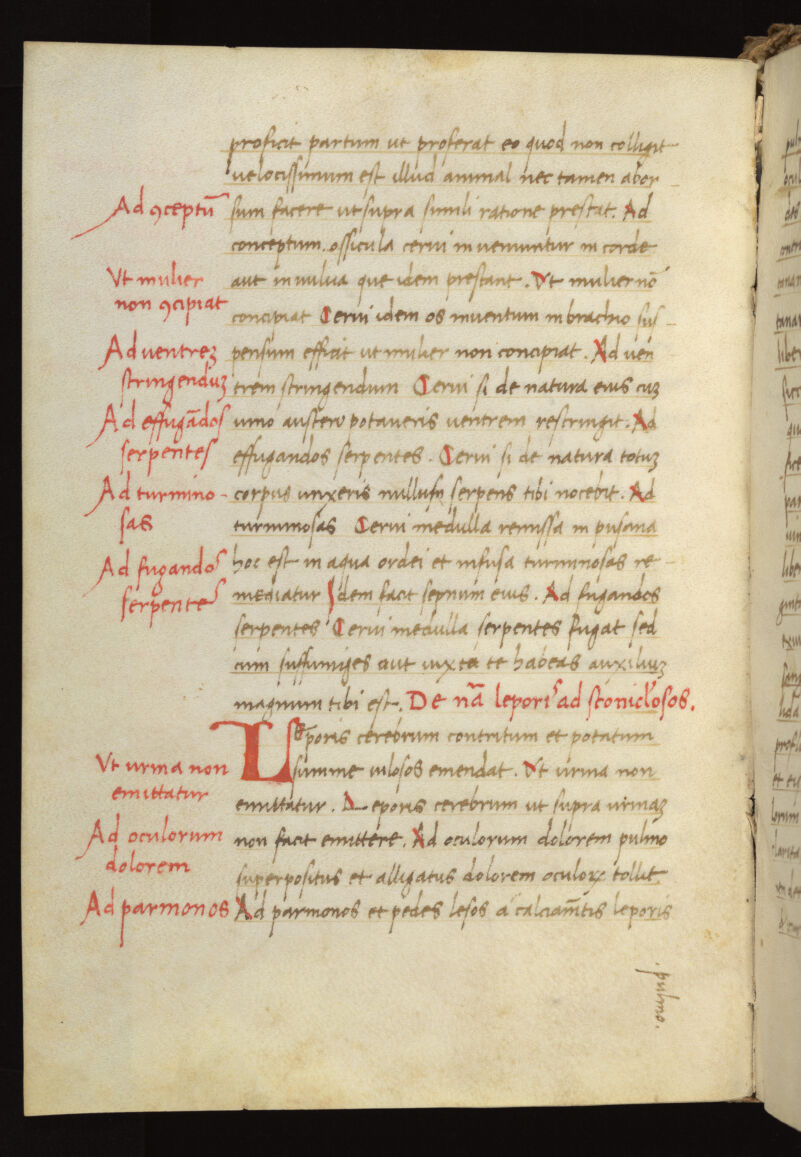 proficit partum ut proferat eo quod non colligit
velocissimum est illud animal nec tamen abor-
Ad ꝯceptū
sum facere ut supra simili ratione prestat. Ad
conceptum. ossicula cervi inveniuntur in corde
Vt mulier
non ꝯcipiat
aut in vulva que idem prestant. Vt mulier nō
concipiat Cervi idem os inventum in brachio sus-
Ad ventreꝫ
stringenduꝫ
pensum efficit ut mulier non concipiat. Ad ven
trem stringendum Cervi si de natura eius cuꝫ
Ad effugādos
serpentes
vino austero potaveris ventrem restringit. Ad
effugandos serpentes. Cervi si de natura totuꝫ
Ad turmino-
sas
corpus unxeris nullus serpens tibi nocebit. Ad
turminosas Cervi medulla remissa in pusana
Ad fugandos
serpentes
hoc est in aqua ordei et infusa turminosas re-
mediatur Idem facit sepnum eius. Ad fugandos
serpentes Cervi medulla serpentes fugat sed
cum suffumiges aut iuxta te habeas auxiliuꝫ
magnum tibi est. De nā leporis ad
Leporis cerebrum contritum et potatum
Vt urina non
emittatur
summe vilosos emendat. Vt urina non
emittatur. Leporis cerebrum ut supra urinaꝫ
Ad oculorum
dolorem
non facit emittere. Ad oculorum dolorem pulmo
superpositus et alligatus dolorem oculoꝝ tollit
Ad parmonos
Ad parmonos et pedes lesos a calciam̄tis leporis
.pulmo.